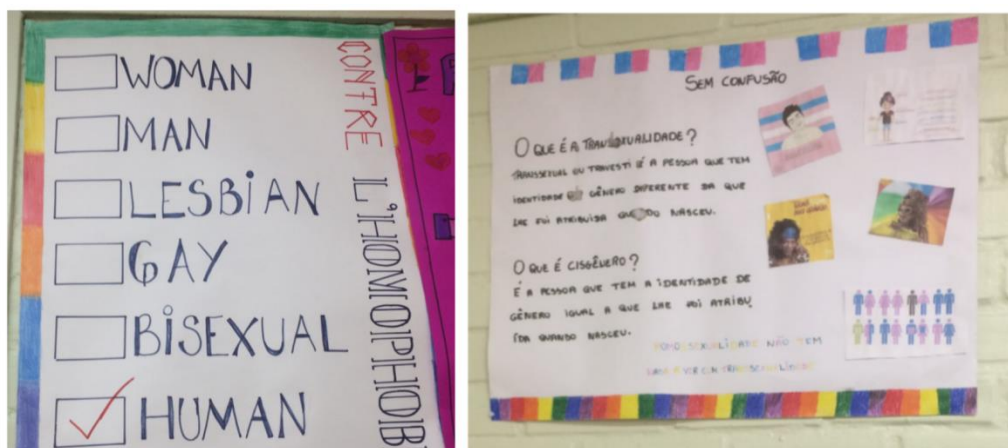 WOMAN
MAN
LESBIAN
GAY
BISEXUAL
HUMAN
CONTRE L'HOMOPHOB
SEM CONFUSÃO
O QUE É A TRANSEXUALIDADE?
TRANSSEXUAL OU TRAVESTI É A PESSOA QUE TEM
IDENTIDADE GÊNERO DIFERENTE DA QUE
LHE FOI ATRIBUIDA NASCEU.
O QUE É CISGÊNERO?
É A PESSOA QUE TEM A IDENTIDADE DE
GÊNERO IGUAL A QUE LHE FOI ATRIBU
ÍDA QUANDO NASCEU.
HOMOSSEXUALIDADE NÃO TEM
NADA A VER COM